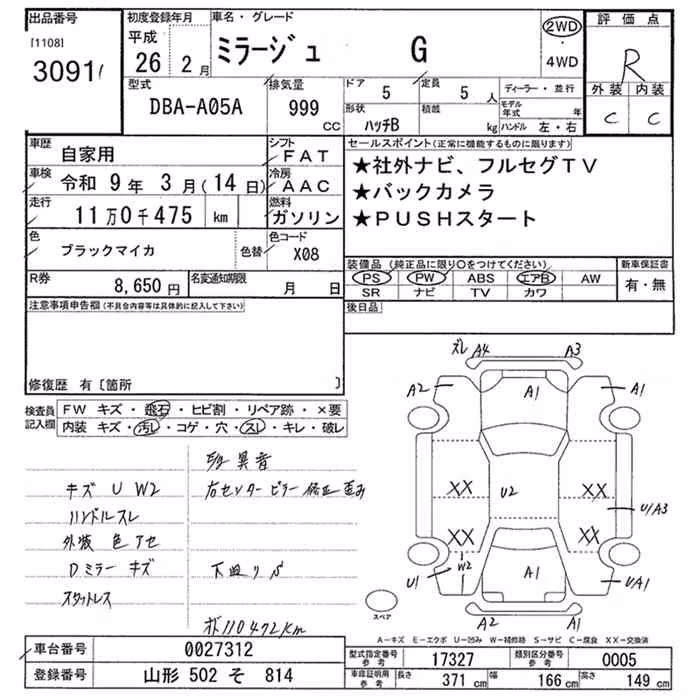 出品番号 初度登録年月 車名・グレード 評価点
[1108] 平成 ミラージュ G 2WD R
3091 26 2月 4WD
型式 排気量 ドア 5 定員 5人 ディーラー・並行 外装 内装
DBA-A05A 999 CC 形状 ハッチB 積載 kg モデル年式 年 C C
ハンドル 左・右
車歴 自家用 シフト FAT セールスポイント(正常に機能するものに限ります)
車検 令和 9年 3月(14日) 冷房 AAC ★社外ナビ、フルセグTV
★バックカメラ
走行 11万0千475 km 燃料 ガソリン ★PUSHスタート
色 ブラックマイカ 色替 色コード X08
装備品 (純正品に限り○をつけてください) 新車保証書
R券 8,650円 名変通知期限 月 日 PS PW ABS エアB AW 有・無
SR ナビ TV カワ
注意事項申告欄(不具合内容等は具体的に記入して下さい) 後日品
修復歴 有〔箇所 〕
ズレ A4 A3
A2 A1 A1
検査員記入欄 FW キズ・飛石・ヒビ割・リペア跡・×要
内装 キズ・汚れ・コゲ・穴・スレ・キレ・破レ
異音
キズ U W2 右センターピラー修正歪み
ハンドルスレ
外装 色アセ
Dミラー キズ 下廻りS
スタットレス
XX U2 XX U/A3
XX XX
U1 W2 A1 U/A1
スペア
A2 A1
110472km
A-キズ E-エクボ U-凹み W-補修跡 S-サビ C-腐食 XX-交換済
車台番号 0027312 型式指定番号 参考 17327 類別区分番号 参考 0005
登録番号 山形 502 そ 814 車庫証明用 参考 長さ 371 cm 幅 166 cm 高さ 149 cm